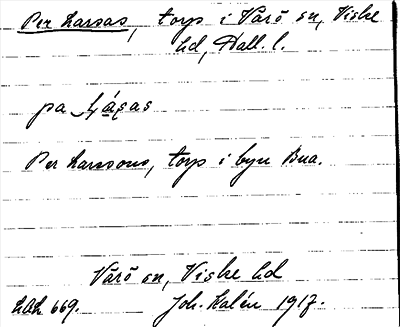 Per Larsas, torp i Värö sn, Viske
hd, Hall. l.
pa Lásas
Per Larssons, torp i byn Bua.
Värö sn, Viske hd
669. Joh. Kalén 1917.